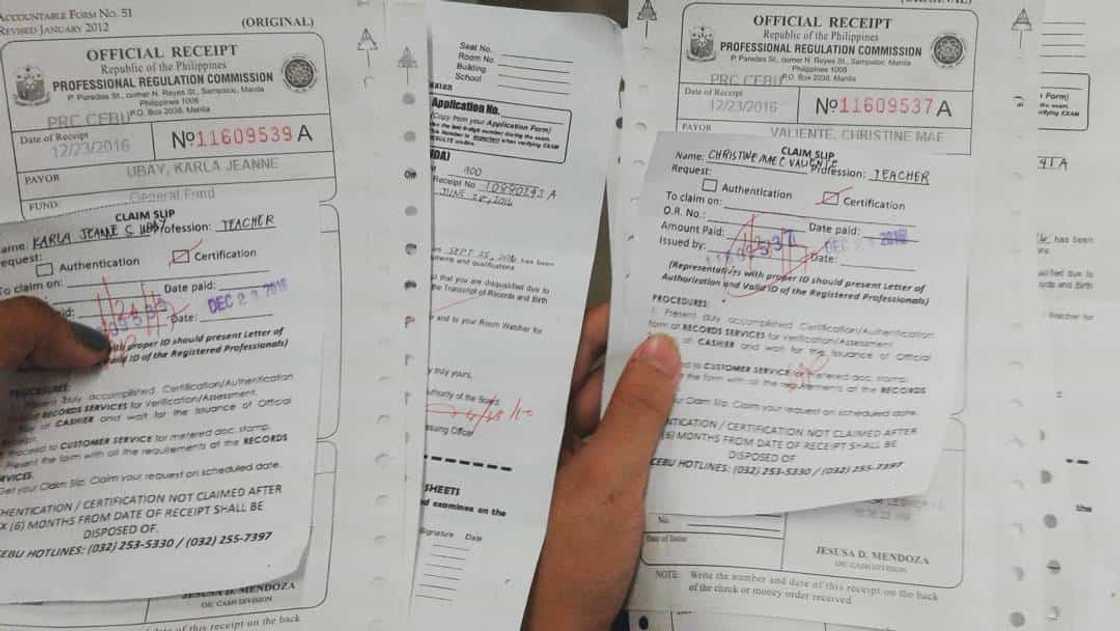 ACCOUNTABLE FORM NO. 51
REVISED JANUARY 2012
(ORIGINAL)
OFFICIAL RECEIPT
Republic of the Philippines
PROFESSIONAL REGULATION COMMISSION
P. Paredes St., corner N. Reyes St., Sampaloc, Manila
Philippines 1008
P.O. Box 2038, Manila
PRC CEBU
Date of Receipt
12/23/2016
No 11609539 A
PAYOR
UBAY, KARLA JEANNE
FUND:
General Fund
CLAIM SLIP
Name: KARLA JEANNE C. UBAY Profession: TEACHER
Request:
Authentication
Certification
To claim on:
Date paid:
DEC 23 2016
Date:
with proper ID should present Letter of
Valid ID of the Registered Professionals)
PROCEDURES:
duly accomplished Certification/Authentication
RECORDS SERVICES for Verification/Assessment.
at CASHIER and wait for the Issuance of Official
Receipt.
Proceed to CUSTOMER SERVICE for metered doc. stamp.
Present the form with all the requirements at the RECORDS
SERVICES.
Get your Claim Slip. Claim your request on scheduled date.
AUTHENTICATION / CERTIFICATION NOT CLAIMED AFTER
SIX (6) MONTHS FROM DATE OF RECEIPT SHALL BE
DISPOSED OF.
CEBU HOTLINES: (032) 253-5330 / (032) 255-7397
JESUSA D. MENDOZA
OIC CASH DIVISION
date of this receipt on the back
Seat No.
Room No.
Building
School
Application No.
(Copy from your Application Form)
100
Receipt No. A
SEPT 25, 2016 has been
and qualifications
that you are disqualified due to
the Transcript of Records and Birth
and to your Room Watcher for
truly yours,
Authority of the Board
Officer
SHEETS
examinee on the
Signature Date
(ORIGINAL)
OFFICIAL RECEIPT
Republic of the Philippines
PROFESSIONAL REGULATION COMMISSION
P. Paredes St., corner N. Reyes St., Sampaloc, Manila
Philippines 1008
P.O. Box 2038, Manila
PRC CEBU
Date of Receipt
12/23/2016
No 11609537 A
PAYOR
VALIENTE, CHRISTINE MAE
CLAIM SLIP
Name: CHRISTINE MAE C. VALIENTE Profession: TEACHER
Request:
Authentication
Certification
To claim on:
O.R. No.:
Amount Paid:
Date paid:
Issued by:
Date:
(Representatives with proper ID should present Letter of
Authorization and Valid ID of the Registered Professionals)
PROCEDURES:
1. Present duly accomplished Certification/Authentication
form at RECORDS SERVICES for Verification/Assessment
at CASHIER and wait for the Issuance of Official
to CUSTOMER SERVICE for metered doc. stamp.
the form with all the requirements at the RECORDS
your Claim Slip. Claim your request on scheduled date.
AUTHENTICATION / CERTIFICATION NOT CLAIMED AFTER
(6) MONTHS FROM DATE OF RECEIPT SHALL BE
DISPOSED OF.
CEBU HOTLINES: (032) 253-5330 / (032) 255-7397
No.
JESUSA D. MENDOZA
OIC CASH DIVISION
NOTE: Write the number and date of this receipt on the back
of the check or money order received.
Form)
has been
the